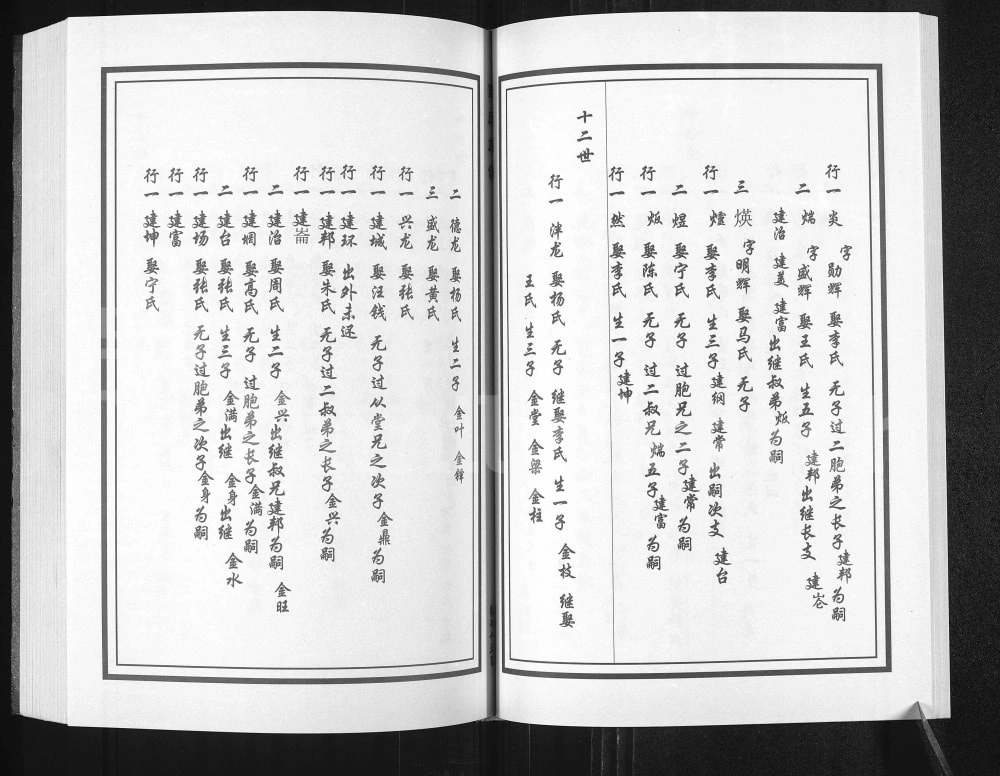 行一 炎 字勋辉 娶李氏 无子过二胞弟之长子建邦为嗣
二 煓 字盛辉 娶王氏 生五子 建邦出继长支 建仑
建治 建美 建富出继叔弟炍为嗣
三 煐 字明辉 娶马氏 无子
行一 㷷 娶李氏 生三子 建纲 建常 出嗣次支 建台
二 煜 娶宁氏 无子 过胞兄之二子建常为嗣
行一 炍 娶陈氏 无子 过二叔兄煓五子建富为嗣
行一 然 娶李氏 生一子建坤
十二世
行一 沣龙 娶杨氏 无子 继娶李氏 生一子 金枝 继娶
王氏 生三子 金堂 金梁 金柱
二 德龙 娶杨氏 生二子 金叶 金铎
三 盛龙 娶黄氏
行一 兴龙 娶张氏
行一 建城 娶汪钱 无子过从堂兄之次子金鼎为嗣
行一 建环 出外未还
行一 建邦 娶朱氏 无子过二叔弟之长子金兴为嗣
行一 建崙
二 建治 娶周氏 生二子 金兴出继叔兄建邦为嗣 金旺
行一 建堈 娶高氏 无子 过胞弟之长子金满为嗣
二 建台 娶张氏 生三子 金满出继 金身出继 金水
行一 建场 娶张氏 无子过胞弟之次子金身为嗣
行一 建富
行一 建坤 娶宁氏